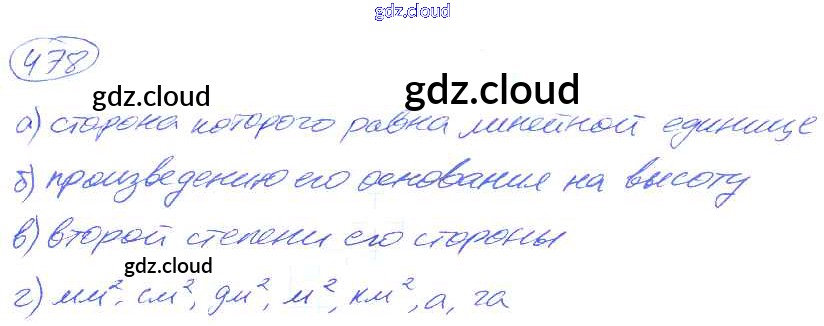 gdz.cloud
478
gdz.cloud gdz.cloud
а) сторона которого равна линейной единице
б) произведению его основания на высоту
в) второй степени его стороны
gdz.cloud
г) мм², см², дм², м², км², а, га